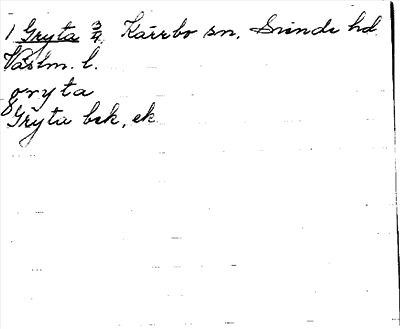 1 Gryta 3/4 Kärrbo sn, Siende hd
Västm. l.
gryta
Gryta bek, ek